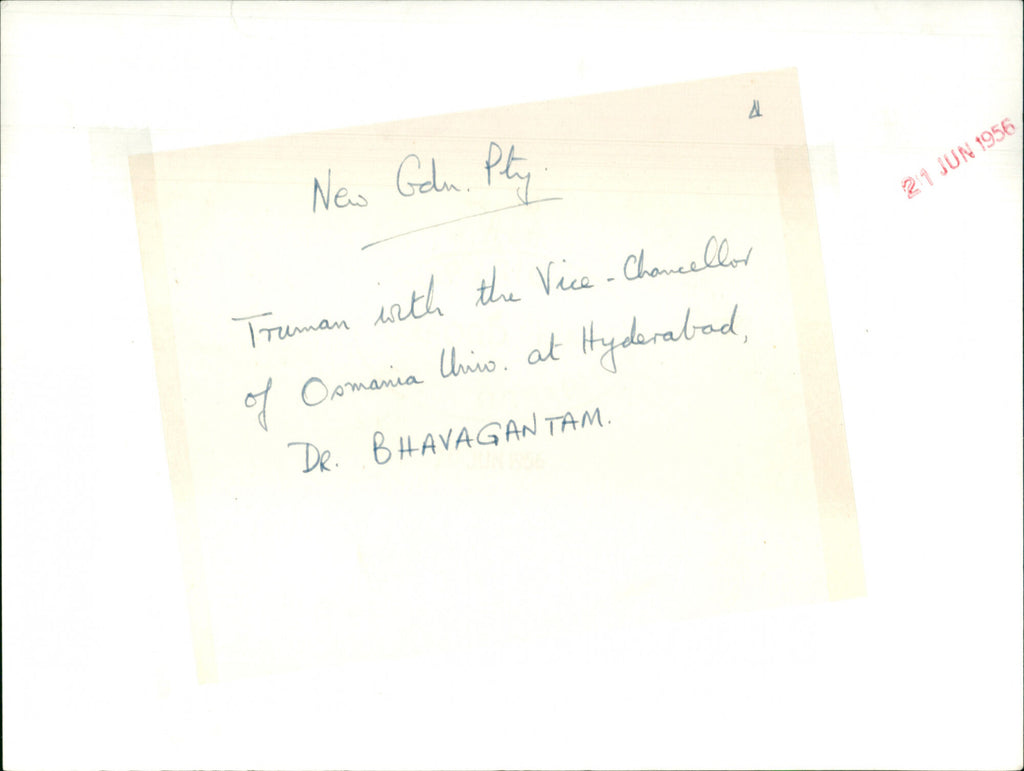 21 JUN 1956
New Gdn. Pty.
Truman with the Vice-Chancellor
of Osmania Univ. at Hyderabad,
DR. BHAVAGANTAM.
JUN 1956